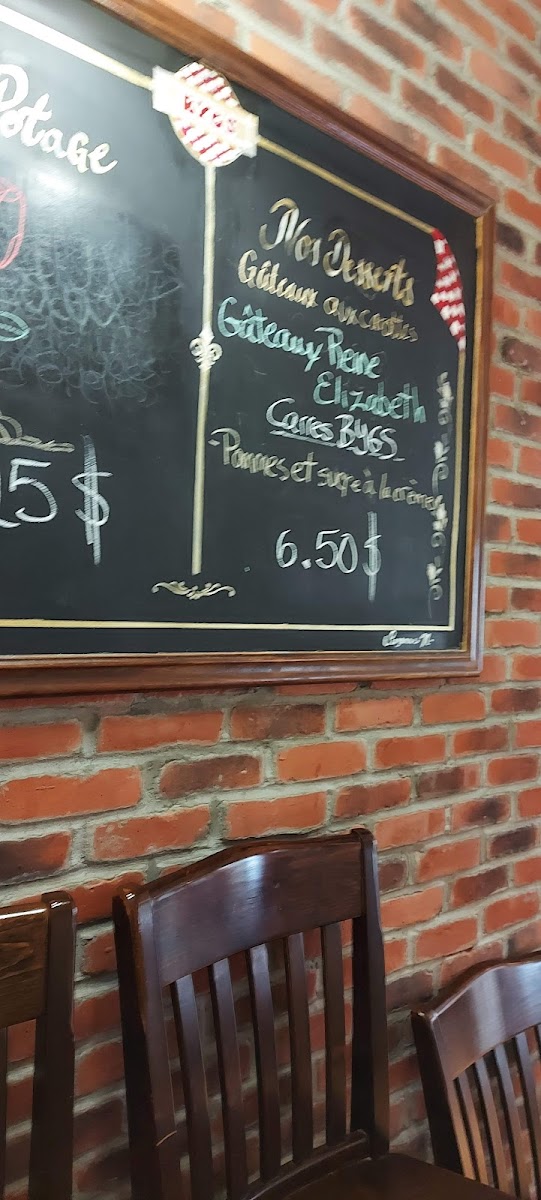 Potage
5 $
Nos Desserts
Gâteaux aux carottes
Gâteaux Reine
Elizabeth
Carres BYGS
- Pommes et sucre à la crème
6.50 $